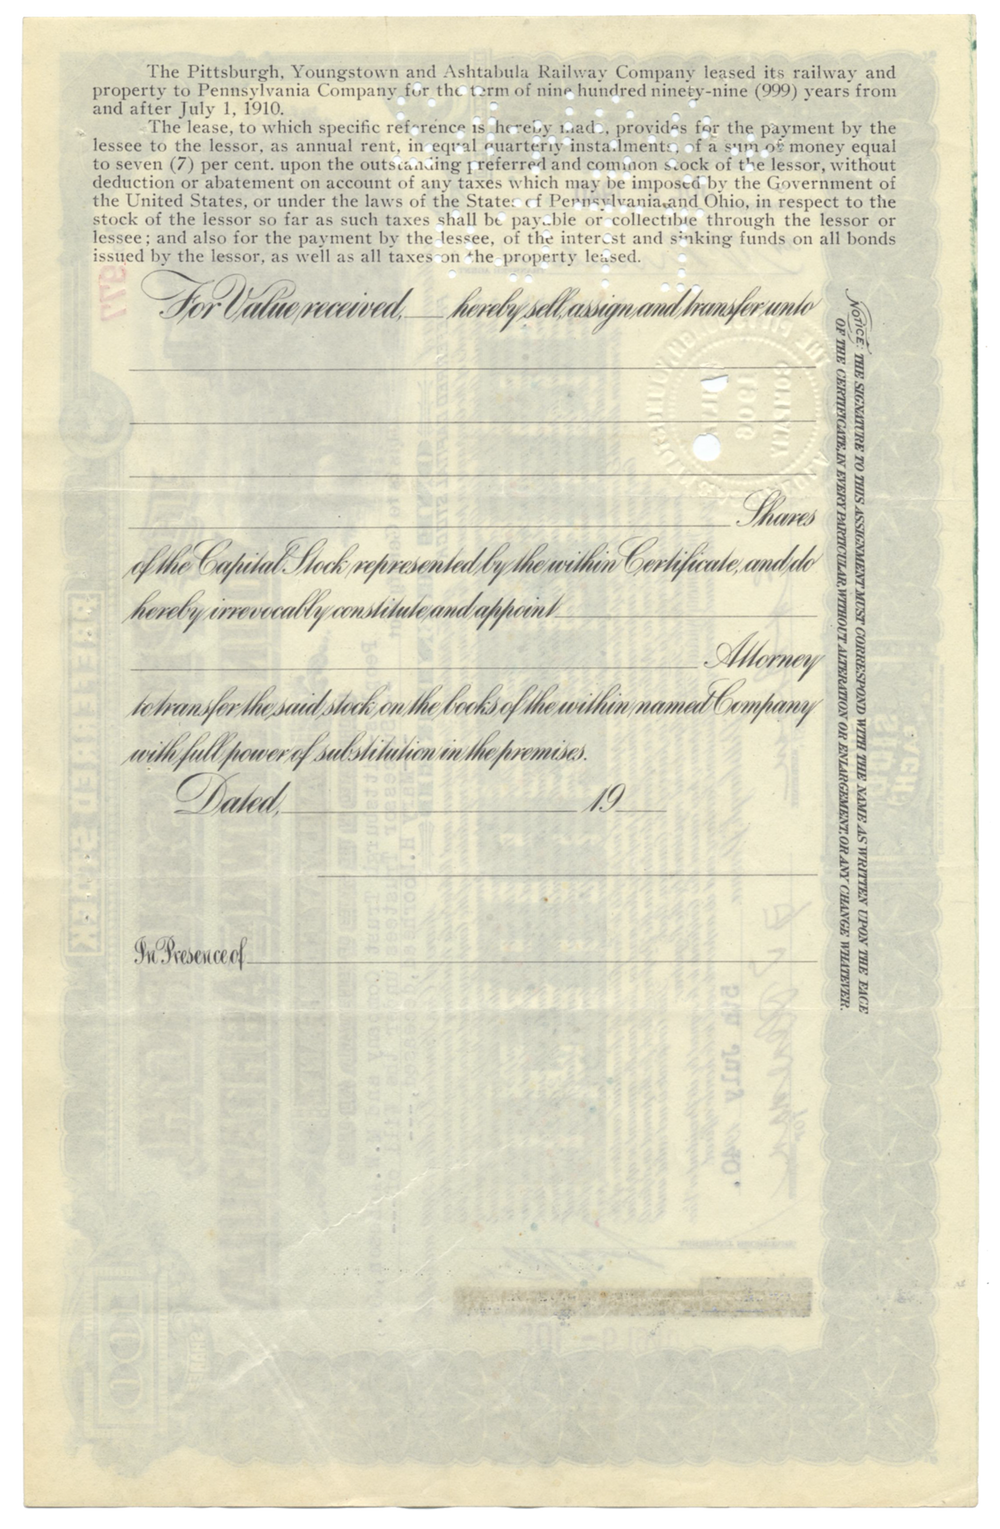 The Pittsburgh, Youngstown and Ashtabula Railway Company leased its railway and
property to Pennsylvania Company for the term of nine hundred ninety-nine (999) years from
and after July 1, 1910.
The lease, to which specific reference is hereby made, provides for the payment by the
lessee to the lessor, as annual rent, in equal quarterly installments, of a sum of money equal
to seven (7) per cent. upon the outstanding preferred and common stock of the lessor, without
deduction or abatement on account of any taxes which may be imposed by the Government of
the United States, or under the laws of the States of Pennsylvania and Ohio, in respect to the
stock of the lessor so far as such taxes shall be payable or collectible through the lessor or
lessee; and also for the payment by the lessee, of the interest and sinking funds on all bonds
issued by the lessor, as well as all taxes on the property leased.
For Value received, hereby sell, assign and transfer unto
Shares
of the Capital Stock represented by the within Certificate, and do
hereby irrevocably constitute and appoint
Attorney
to transfer the said stock on the books of the within named Company
with full power of substitution in the premises.
Dated, 19
In Presence of
NOTICE: THE SIGNATURE TO THIS ASSIGNMENT MUST CORRESPOND WITH THE NAME AS WRITTEN UPON THE FACE
OF THE CERTIFICATE, IN EVERY PARTICULAR WITHOUT ALTERATION OR ENLARGEMENT, OR ANY CHANGE WHATEVER.